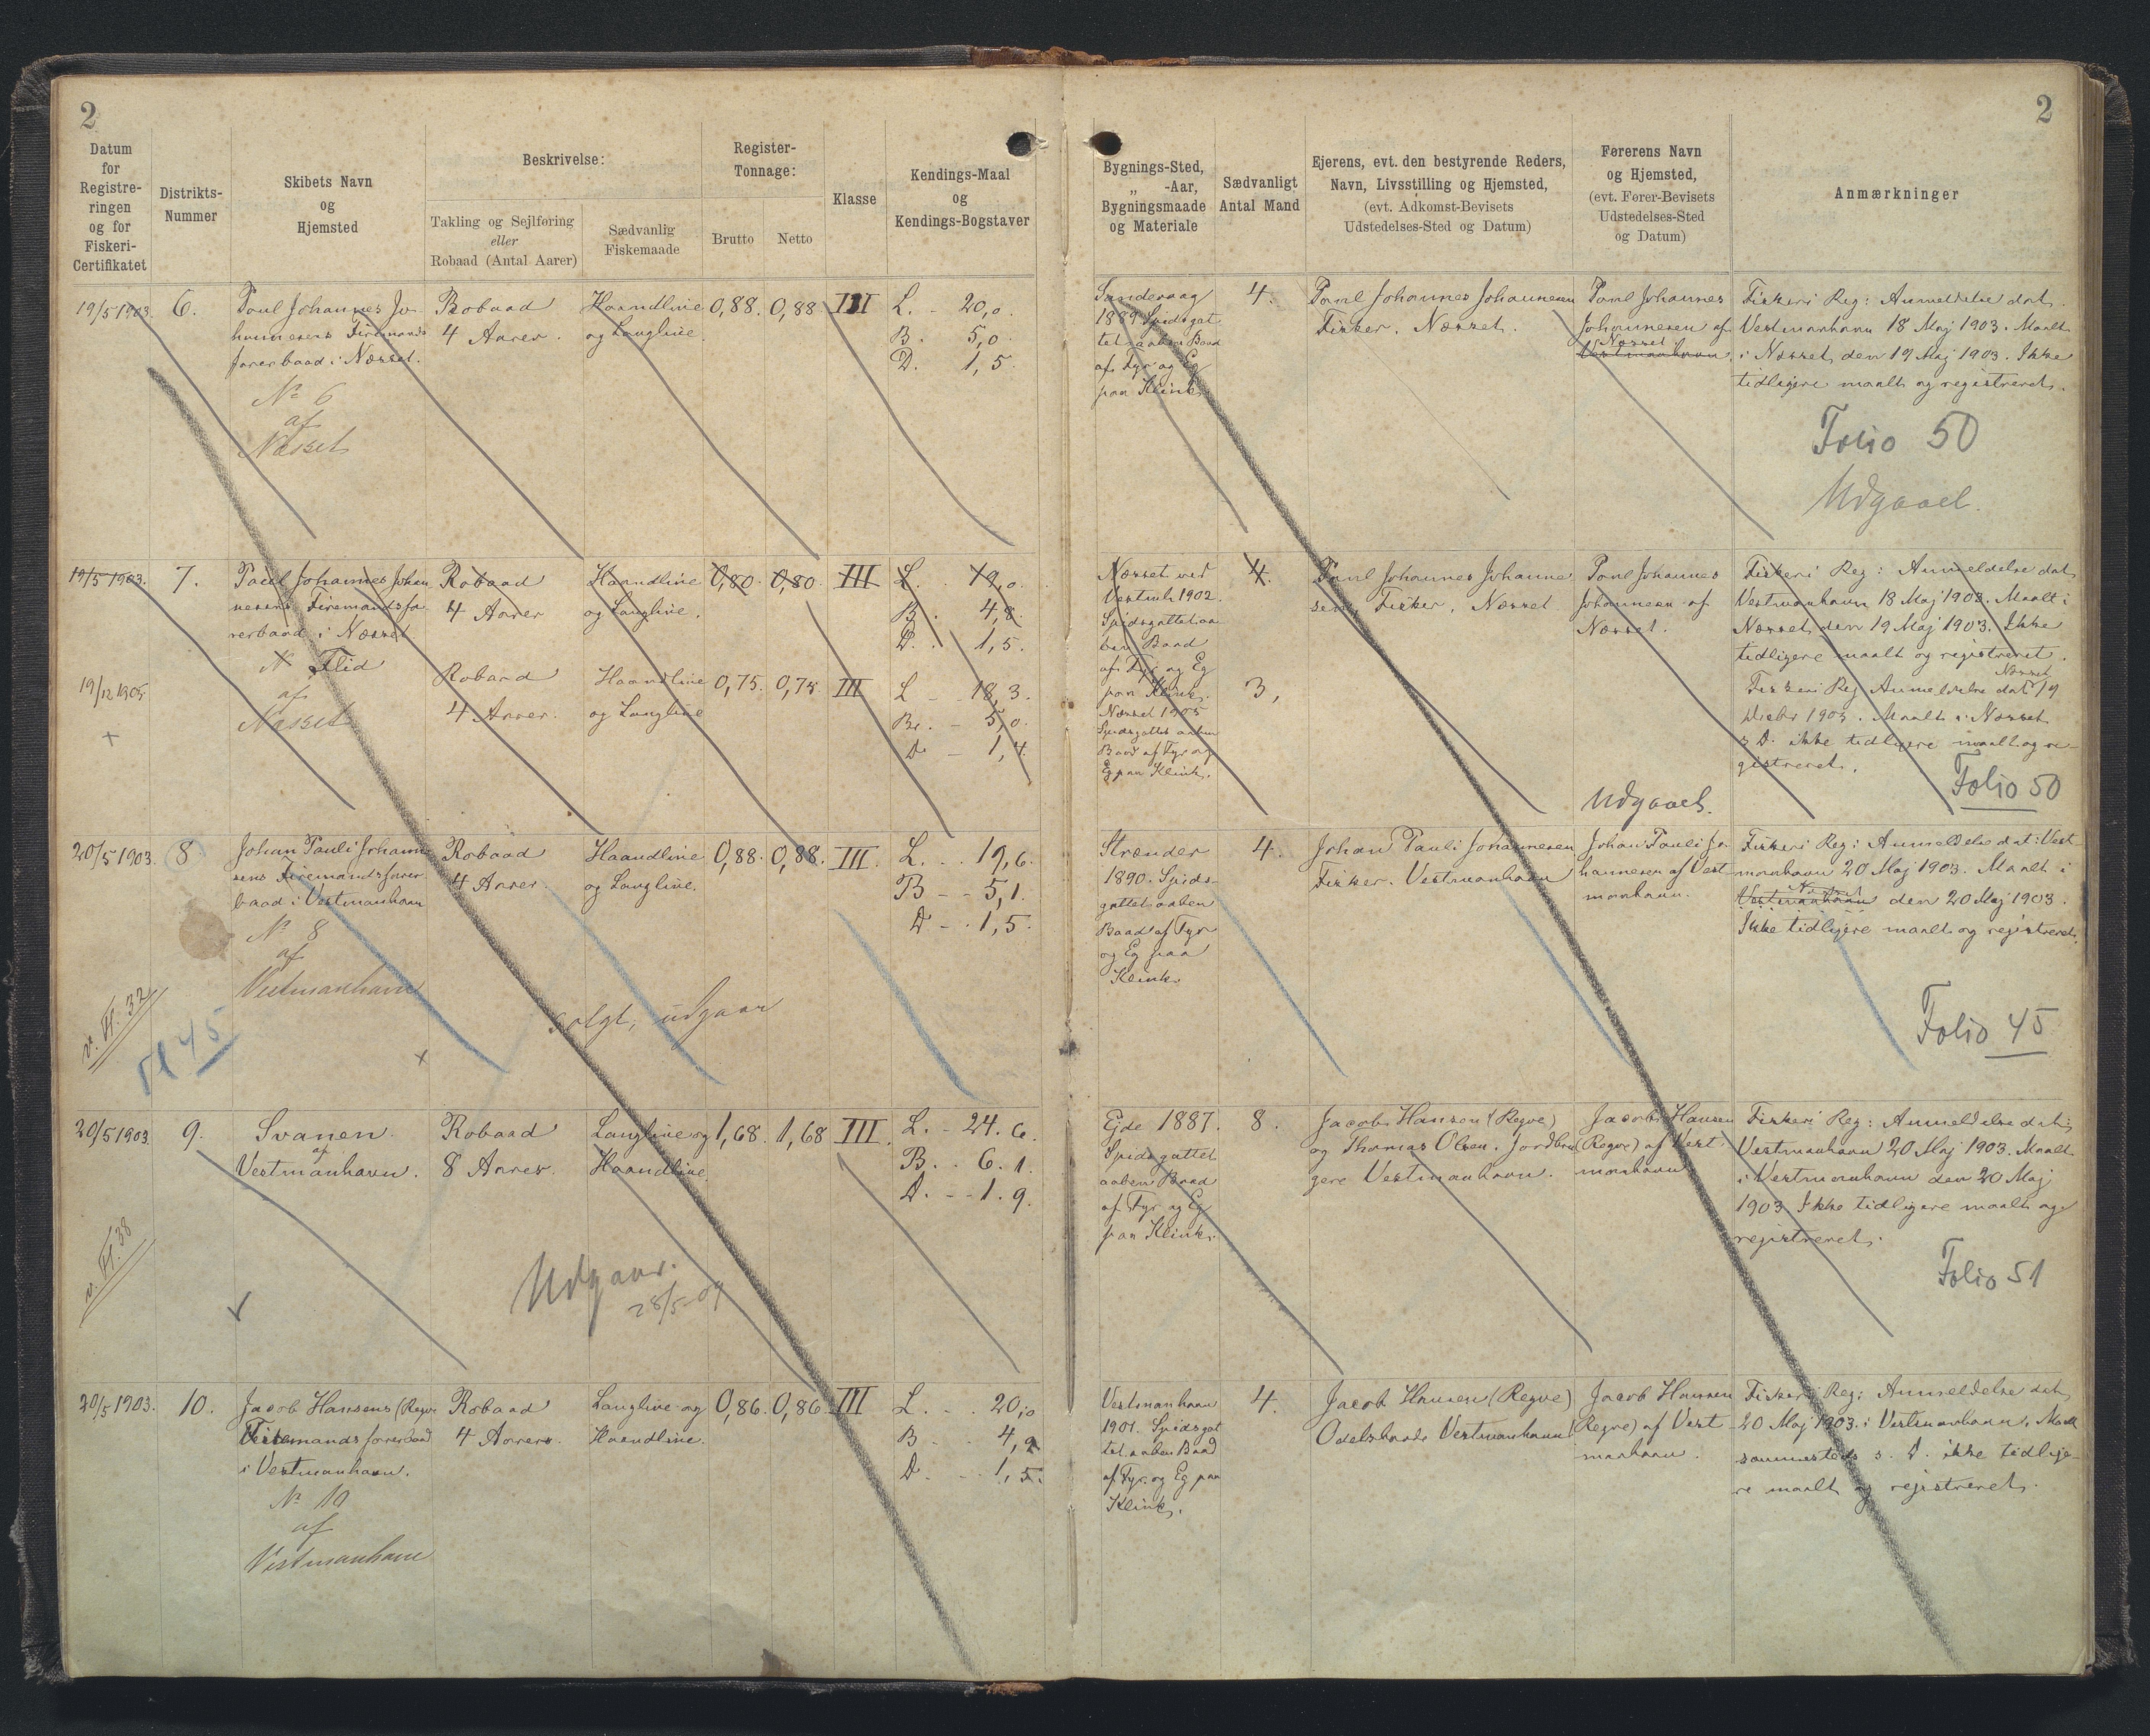 2
2
Datum
for
Registre-
ringen
og for
Fiskeri-
Certifikatet
Distrikts-
Nummer
Skibets Navn
og
Hjemsted
Beskrivelse:
Takling og Sejlføring
eller
Robaad (Antal Aarer)
Sædvanlig
Fiskemaade
Register-
Tonnage:
Brutto
Netto
Klasse
Kendings-Maal
og
Kendings-Bogstaver
Bygnings-Sted,
„ -Aar,
Bygningsmaade
og Materiale
Sædvanligt
Antal Mand
Ejerens, evt. den bestyrende Reders,
Navn, Livsstilling og Hjemsted,
(evt. Adkomst-Bevisets
Udstedelses-Sted og Datum)
Førerens Navn
og Hjemsted,
(evt. Fører-Bevisets
Udstedelses-Sted
og Datum)
Anmærkninger
19/5 1903.
6.
Poul Johannes Jo-
hannesens Firemands
farerbaad i Næsset.
No 6
af
Næsset
Robaad
4 Aarer.
Haandline
og Langline.
0,88.
0,88
III
L. - 20,0.
B. 5,0.
D. 1,5.
1889 Spidsgat
tet aaben Baad
af Fyr og Eg
paa Klink.
4.
Poul Johannes Johannesen
Fisker. Næsset.
Poul Johannes
Johannesen af
Næsset
Vestmanhavn
Fiskeri Reg: Anmeldelse dat.
Vestmanhavn 18 Maj 1903. Maalt
i Næsset den 19 Maj 1903. Ikke
tidligere maalt og registreret.
Folio 50
Udgaaet.
19/5 1903.
7.
Poul Johannes Johan
nesens Firemandsfa
rerbaad i Næsset
N Flid
af
Næsset
Robaad
4 Aarer
Haandline
og Langline.
0,80.
0,80.
III
L. 19,0.
B. 4,8.
D. 1,5.
Næsset ved
Vestmh 1902.
Spidsgattet aa
ben Baad
af Fyr og Eg
paa Klink.
4.
Poul Johannes Johanne
sen, Fisker, Næsset
Poul Johannes
Johannesen af
Næsset.
Fiskeri Reg: Anmeldelse dat
Vestmanhavn 18 Maj 1903. Maalt i
Næsset den 19 Maj 1903. Ikke
tidligere maalt og registreret.
19/12 1905
+
Robaad
4 Aarer.
Haandline
og Langline
0,75.
0,75
III
L - 18,3.
Br. - 5,0.
D - 1,4.
Næsset 1905
Spidsgattet aaben
Baad af Fyr og
Eg paa Klink.
3,
Næsset
Fiskeri Reg Anmeldelse dat 19
Decbr 1905. Maalt i Næsset
s. D. ikke tidligere maalt og re-
gistreret.
Folio 50
Udgaaet.
20/5 1903.
8.
Johan Pauli Johanne
sens Firemandsfarer
baad i Vestmanhavn
No 8
af
Vestmanhavn
Robaad
4 Aarer.
Haandline
og Langline.
0,88.
0,88.
III.
L. - . 19,6.
B - - 5,1.
D - . 1,5.
Strender
1890. Spids-
gattet aaben
Baad af Fyr
og Eg paa
Klink.
4.
Johan Pauli Johannesen
Fisker. Vestmanhavn
Johan Pauli Jo-
hannesen af Vest-
manhavn.
Fiskeri Reg: Anmeldelse dat: Vest-
manhavn 20 Maj 1903. Maalt i
Vestmanhavn den 20 Maj 1903.
Ikke tidligere maalt og registreret.
v. Fl. 32
Fl 45
solgt, udgaar
+
Folio 45
20/5 1903.
9.
Svanen
af
Vestmanhavn.
Robaad
8 Aarer.
Langline og
Haandline.
1,68.
1,68
III.
L. - 24.6.
B. . 6.1.
D. - - 1.9.
Ejde 1887.
Spidsgattet
aaben Baad
af Fyr og Eg
paa Klink.
8.
Jacob Hansen (Regve)
og Thomas Olsen. Jordbru
gere Vestmanhavn.
Jacob Hansen
(Regve) af Vest
manhavn
Fiskeri Reg: Anmeldelse dat:
Vestmanhavn 20 Maj 1903. Maalt
i Vestmanhavn den 20 Maj
1903 Ikke tidligere maalt og
registreret.
v. Fl. 38
Udgaar.
28/5-09
Folio 51
20/5 1903.
10.
Jacob Hansens (Regve
Firemandsfarerbaad
i Vestmanhavn.
No 10
af
Vestmanhavn
Robaad
4 Aarer.
Langline og
Haandline.
0,86.
0,86.
III
L. - . . 20,0
B - . . 4,9
D. - . . 1,5.
Vestmanhavn
1901. Spidsgat
tet aaben Baad
af Fyr og Eg paa
Klink.
4.
Jacob Hansen (Regve)
Odelsbonde Vestmanhavn
Jacob Hansen
(Regve) af Vest
manhavn.
Fiskeri Reg: Anmeldelse dat,
20 Maj 1903. i Vestmanhavn. Maalt
sammesteds s. D. ikke tidlige-
re maalt og registreret.